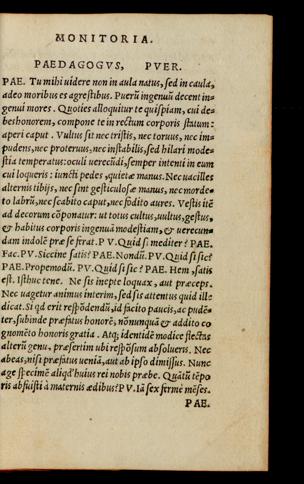 MONITORIA.
PAEDAGOGVS, PVER.
PAE. Tu mihi uidere non in aula natus, sed in caula,
adeo moribus es agrestibus. Puerū ingenuū decent in-
genui mores. Quoties alloquitur te quispiam, cui de-
bes honorem, compone te in rectum corporis statum:
aperi caput. Vultus sit nec tristis, nec toruus, nec im-
pudens, nec proteruus, nec instabilis, sed hilari mode-
stia temperatus: oculi uerecūdi, semper intenti in eum
cui loqueris: iuncti pedes, quietæ manus. Nec uacilles
alternis tibijs, nec sint gesticulosæ manus, nec morde-
to labrū, nec scabito caput, nec fodito aures. Vestis itē
ad decorum cōponatur: ut totus cultus, uultus, gestus,
& habitus corporis ingenuā modestiam, & uerecun-
dam indolē præ se firat. PV. Quid si mediter? PAE.
Fac. PV. Siccine satis? PAE. Nondū. PV. Quid si sic?
PAE. Propemodū. PV. Quid si sic? PAE. Hem, satis
est. Isthuc tene. Ne sis inepte loquax, aut præceps.
Nec uagetur animus interim, sed sis attentus quid ille
dicat. Si qd erit respōdendū, id facito paucis, ac prudē-
ter, subinde præfatus honorē, nōnunquā & addito co
gnomēto honoris gratia. Atq; identidē modice flectas
alterū genu, præsertim ubi respōsum absolueris. Nec
abeas, nisi præfatus ueniā, aut ab ipso dimissus. Nunc
age specimē aliqd huius rei nobis præbe. Quātū tēpo
ris abfuisti à maternis ædibus? PV. Iā sex fermè mēses.
PAE.